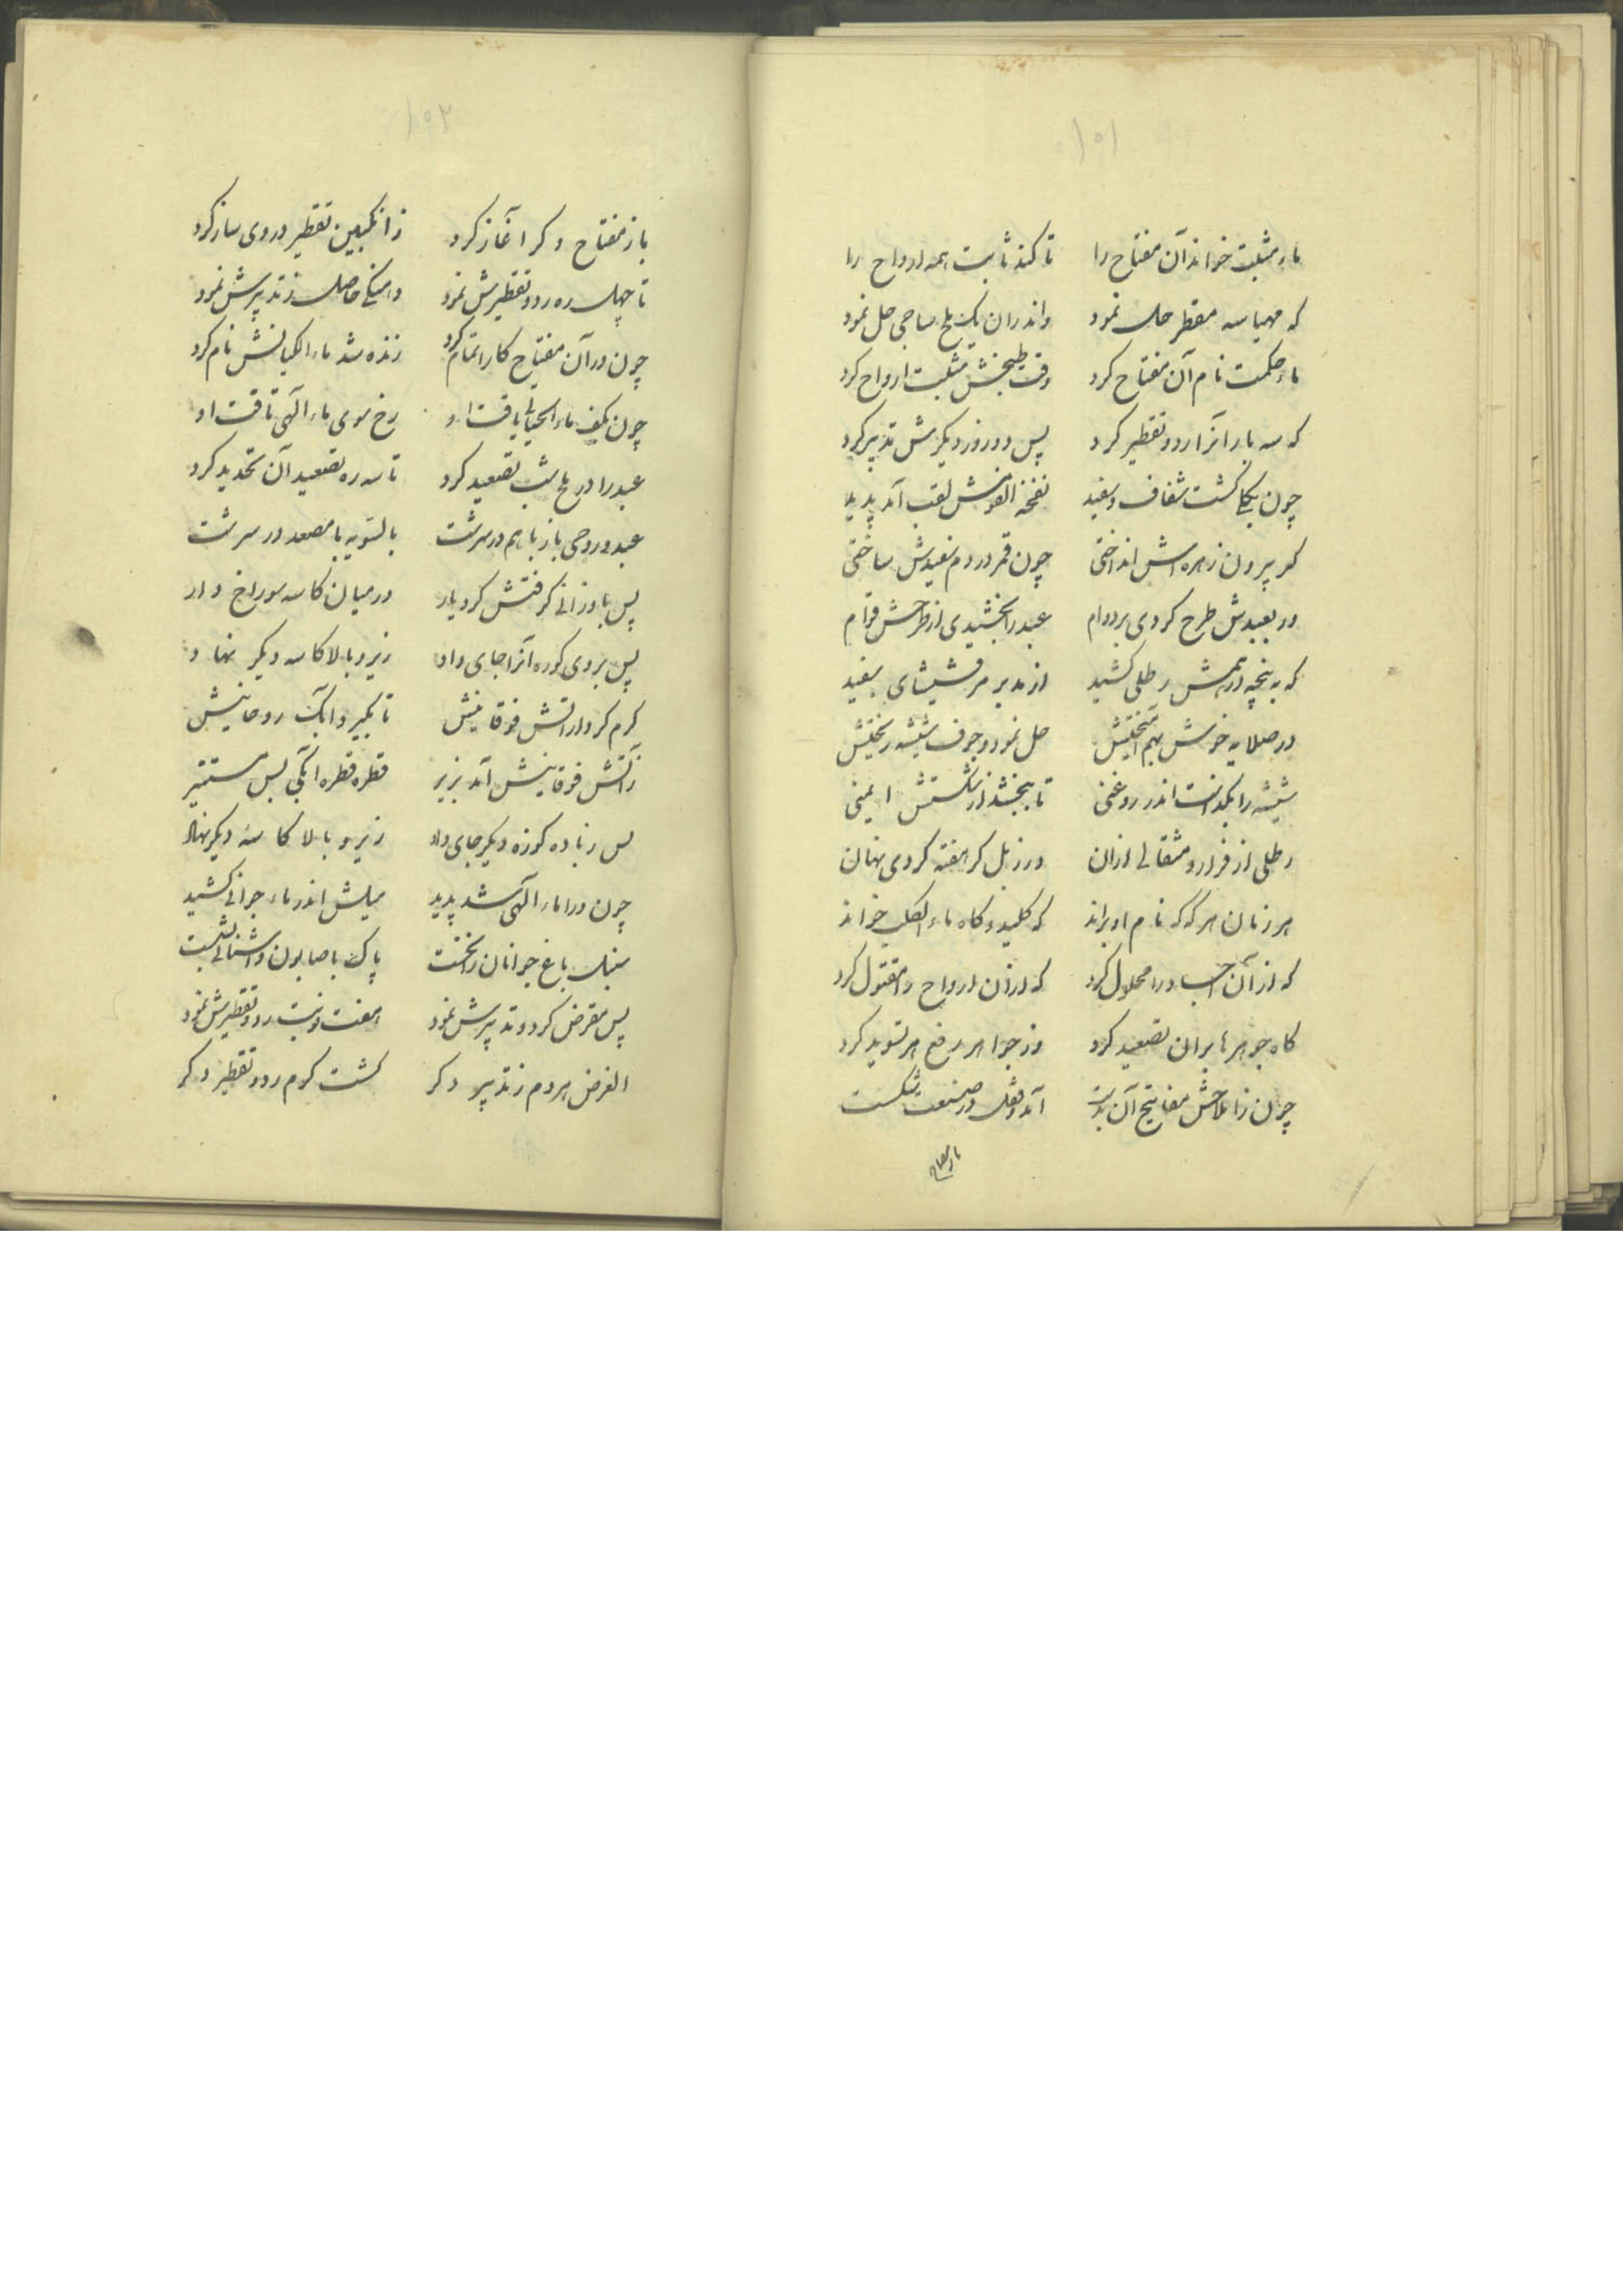 ۱۰۱
ماء مثبت خواند آن مفتاح را تا کند ثابت همه ارواح را
که مهیا سه مقطر حل نمود واندران یک ملح ساجی حل نمود
ماء حکمت نام آن مفتاح کرد وقت طبخش مثبت ارواح کرد
که سه بار آنرا ردو تقطیر کرد پس دو روز دیگرش تدبیر کرد
چون یکجا گشت شفاف و سفید نفخة لقب آمد پدید
کر برون زهره اش انداختی چون قمر در دم سفیدش ساختی
ور بعبدش طرح کردی بر دوام عبد را بخشیدی از طرحش قوام
که به پنجه درهمش رطلی کشید از مدبر مرقشیشای سفید
در صلایه خوش بهم آمیختیش حل نمود و جوف شیشه ریختیش
شیشه را بگذاشت اندر روغنی تا ببخشد از شکستش ایمنی
رطلی از فرار و مثقالی ازان در زبل کر هفته کردی نهان
هر زمان هرگه که نام او براند که کلید و گاه ماء الکلب خواند
که از آن اجساد را محلول کرد که ازان ارواح را مقتول کرد
گاه جوهرها بران تصعید کرد وز جواهر رفع هر تسوید کرد
چون ز املاحش مفاتیح آن بدست آمد و قفل در صنعت شکست
باز مفتاح
۱۰۲
باز مفتاح دکر آغاز کرد ز انکبین تقطیر در وی ساز کرد
تا چهل ره ردو تقطیرش نمود حاصل ز تدبیرش نمود
چون در آن مفتاح کار اتمام کرد زنده شد ماء نام کرد
چون بکف ماء الحیاتی یافت او رخ سوی ماء الهی تافت او
عبد را در ملح شب تصعید کرد تا سه ره تصعید آن تحدید کرد
عبد و روحی باز با هم در سرشت بالتسویه با مصعد در سرشت
پس با وزانی گرفتش کرد یار در میان کاسه سوراخ دار
پس بروی کوره آنرا جای داد زیر و بالا کاسه دیگر نهاد
گرم کرد از آتش فوقانیش تا بگیرد آبک روحانیش
ز آتش فوقانیش آمد بزیر قطره قطره آبکی بس مستنیر
پس زباده کوزه دیگر جای داد زیر و بالا کاسهٔ دیگر نهاد
چون ورا ماء الهی شد پدید میلش اندر ماء جرانی کشید
سنبل باغ جوانان را نخست پاک با صابون و اشنانی بشست
پس مقرض کرد و تدبیرش نمود هفت نوبت ردو تقطیرش نمود
الغرض هر دم ز تدبیر دکر گشت گرم ردو تقطیر دکر